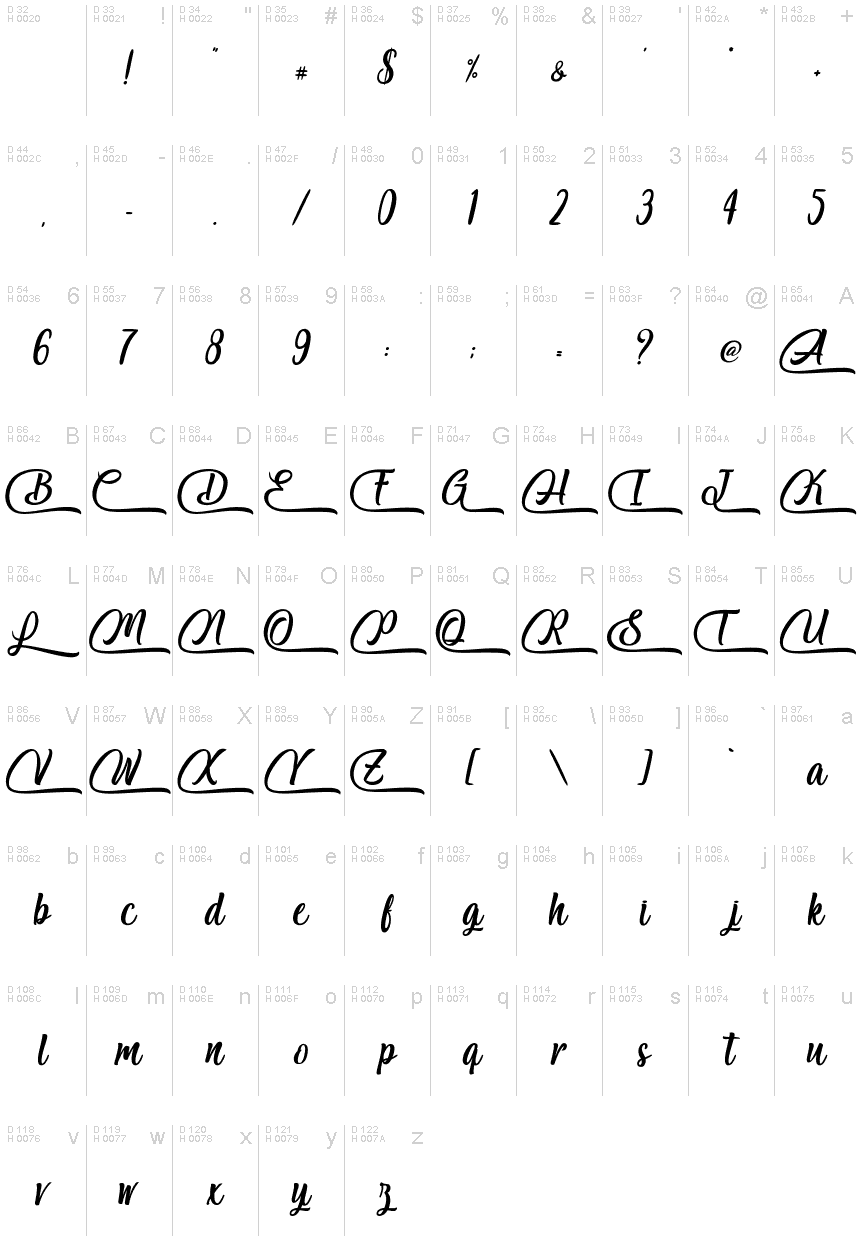 D 32 H 0020 D 33 H 0021 ! D 34 H 0022 " D 35 H 0023 # D 36 H 0024 $ D 37 H 0025 % D 38 H 0026 & D 39 H 0027 ' D 42 H 002A * D 43 H 002B +
! " # $ % & ' * +
D 44 H 002C , D 45 H 002D - D 46 H 002E . D 47 H 002F / D 48 H 0030 0 D 49 H 0031 1 D 50 H 0032 2 D 51 H 0033 3 D 52 H 0034 4 D 53 H 0035 5
, - . / 0 1 2 3 4 5
D 54 H 0036 6 D 55 H 0037 7 D 56 H 0038 8 D 57 H 0039 9 D 58 H 003A : D 59 H 003B ; D 61 H 003D = D 63 H 003F ? D 64 H 0040 @ D 65 H 0041 A
6 7 8 9 : ; = ? @ A
D 66 H 0042 B D 67 H 0043 C D 68 H 0044 D D 69 H 0045 E D 70 H 0046 F D 71 H 0047 G D 72 H 0048 H D 73 H 0049 I D 74 H 004A J D 75 H 004B K
B C D E F G H I J K
D 76 H 004C L D 77 H 004D M D 78 H 004E N D 79 H 004F O D 80 H 0050 P D 81 H 0051 Q D 82 H 0052 R D 83 H 0053 S D 84 H 0054 T D 85 H 0055 U
L M N O P Q R S T U
D 86 H 0056 V D 87 H 0057 W D 88 H 0058 X D 89 H 0059 Y D 90 H 005A Z D 91 H 005B [ D 92 H 005C \ D 93 H 005D ] D 96 H 0060 ` D 97 H 0061 a
V W X Y Z [ \ ] ` a
D 98 H 0062 b D 99 H 0063 c D 100 H 0064 d D 101 H 0065 e D 102 H 0066 f D 103 H 0067 g D 104 H 0068 h D 105 H 0069 i D 106 H 006A j D 107 H 006B k
b c d e f g h i j k
D 108 H 006C l D 109 H 006D m D 110 H 006E n D 111 H 006F o D 112 H 0070 p D 113 H 0071 q D 114 H 0072 r D 115 H 0073 s D 116 H 0074 t D 117 H 0075 u
l m n o p q r s t u
D 118 H 0076 v D 119 H 0077 w D 120 H 0078 x D 121 H 0079 y D 122 H 007A z
v w x y z